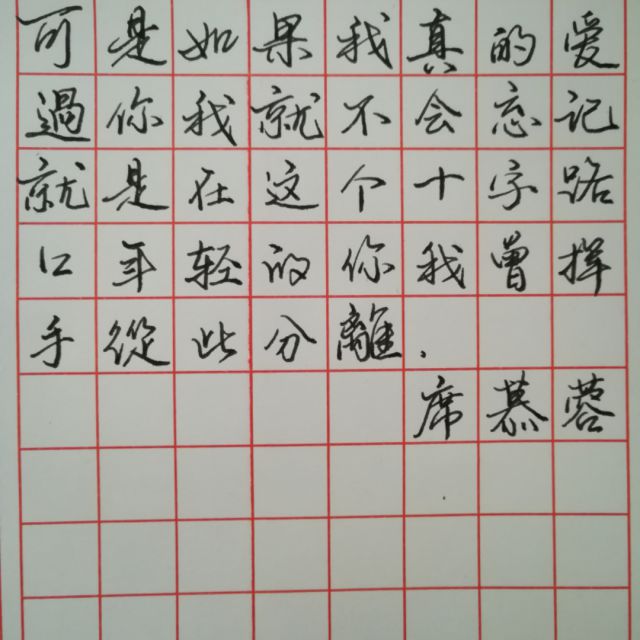 可是如果我真的爱
過你我就不会忘记
就是在这个十字路
口年轻的你我曾挥
手從此分離.
席慕蓉